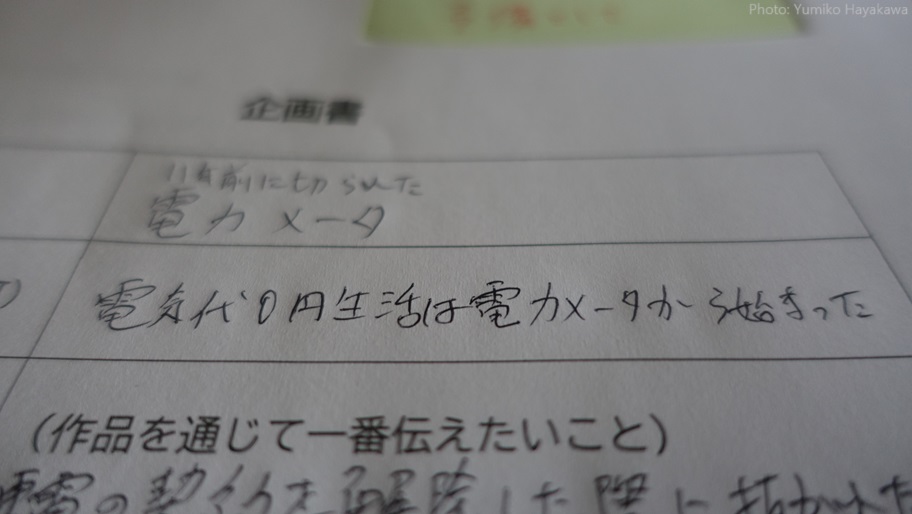 Photo: Yumiko Hayakawa
企画書
11年前に切られた
電力メータ
電気代0円生活は電力メータから始まった
（作品を通じて一番伝えたいこと）
電の契約を解除した際に